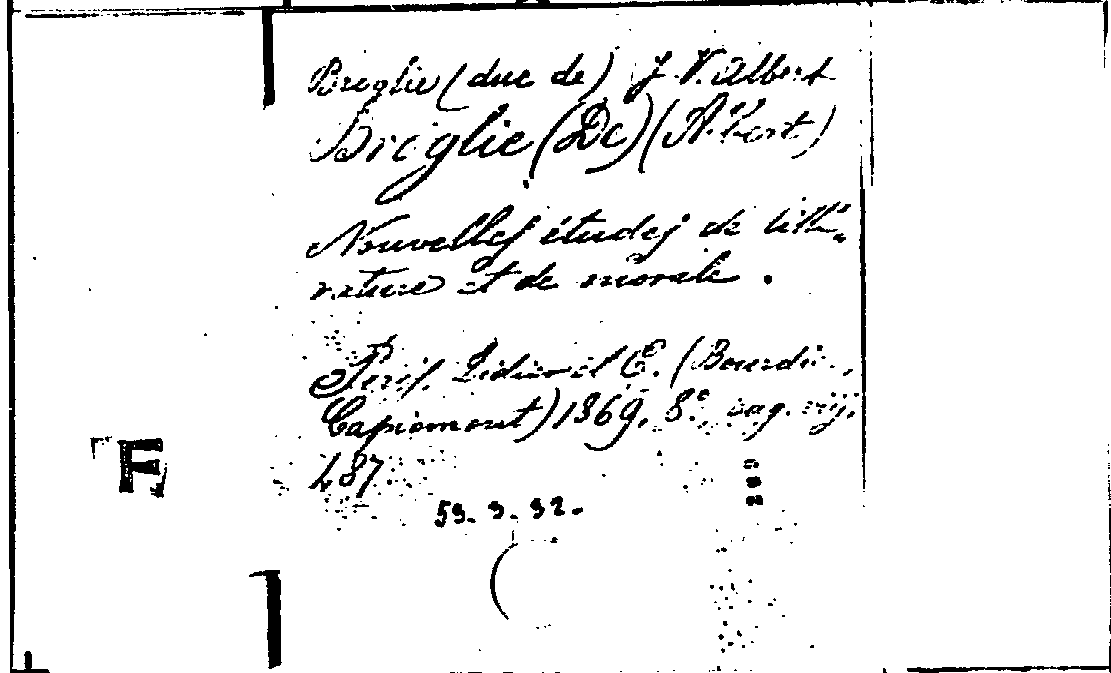 Broglie (duc de) J. V. Albert
Broglie (De) (Albert)
Nouvelles études de litté-
rature et de morale.
Paris, Didier et C. (Bourdier,
Capiomont) 1869, 8°, pag. vij,
487
53. 3. 32.
F